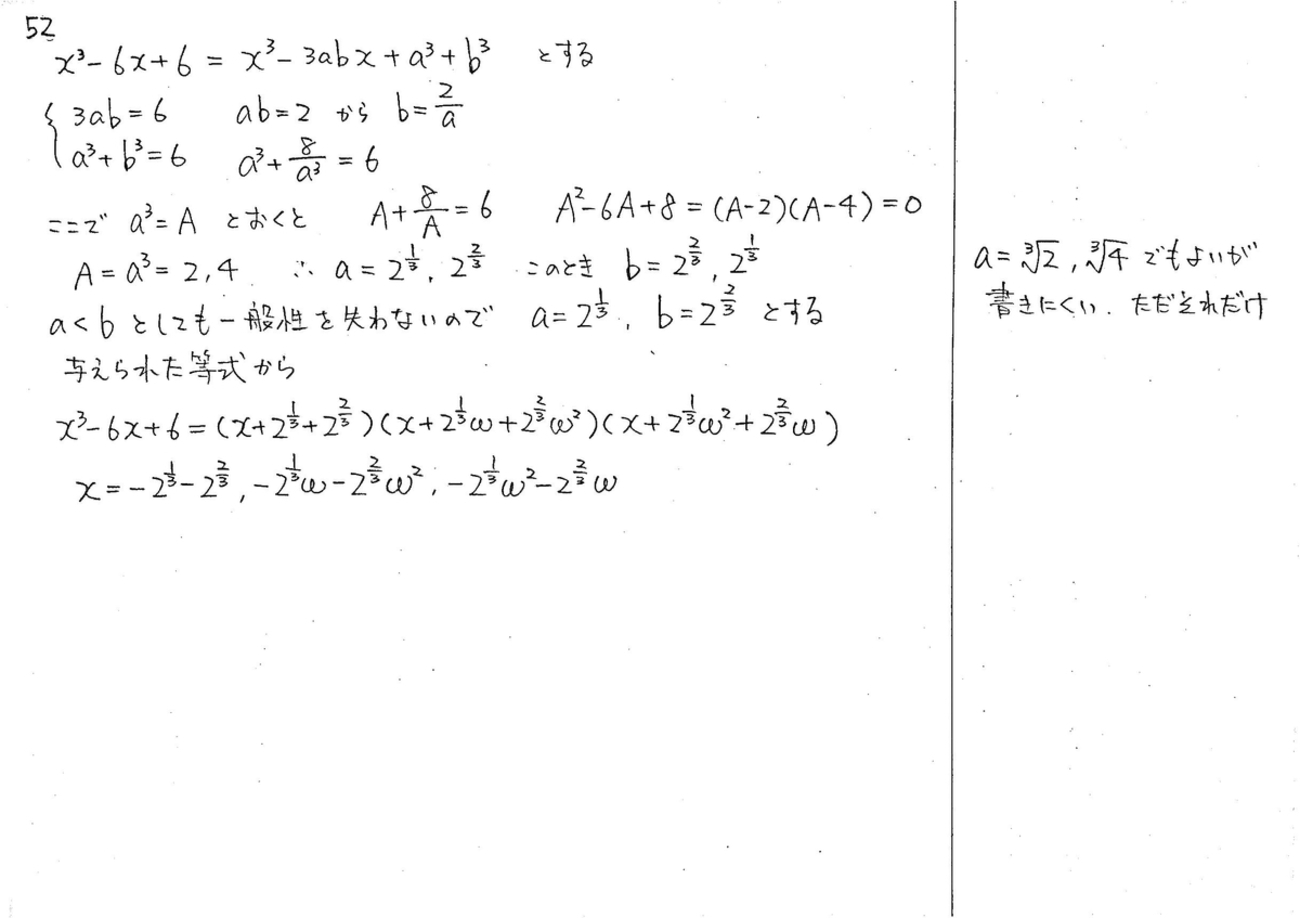 52
x³-6x+6 = x³-3abx+a³+b³ とする
{ 3ab=6 ab=2 から b=2/a
a³+b³=6 a³+8/a³=6
ここで a³=A とおくと A+8/A=6 A²-6A+8=(A-2)(A-4)=0
A=a³=2,4 ∴ a=2^(1/3), 2^(2/3) このとき b=2^(2/3), 2^(1/3)
a<b としても一般性を失わないので a=2^(1/3), b=2^(2/3) とする
与えられた等式から
x³-6x+6=(x+2^(1/3)+2^(2/3))(x+2^(1/3)ω+2^(2/3)ω²)(x+2^(1/3)ω²+2^(2/3)ω)
x=-2^(1/3)-2^(2/3), -2^(1/3)ω-2^(2/3)ω², -2^(1/3)ω²-2^(2/3)ω
a=∛2, ∛4 でもよいが
書きにくい. ただそれだけ